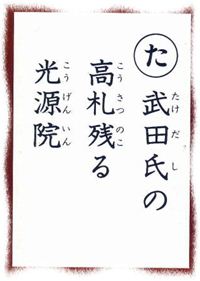 た
武田氏の
たけだし
高札残る
こうさつのこ
光源院
こうげんいん